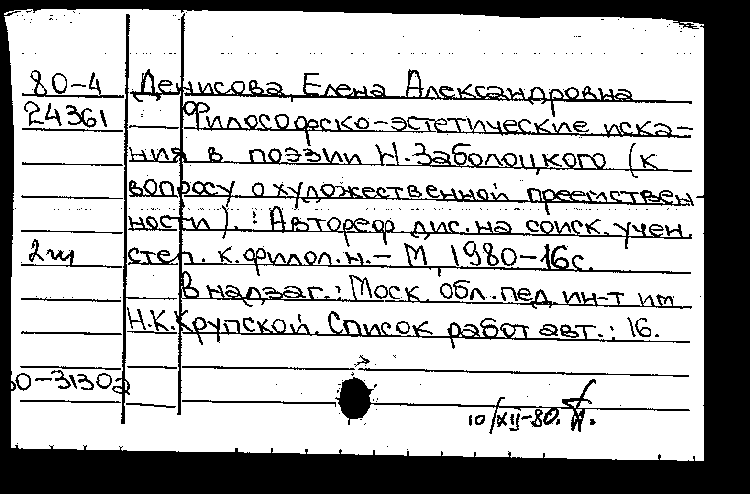 80-4 Денисова, Елена Александровна
24361 Философско-эстетические иска-
ния в поэзии Н.Заболоцкого (к
вопросу о художественной преемствен-
ности). : Автореф дис. на соиск. учен.
2 степ. к. филол. н. - М, 1980-16с.
В надзаг.: Моск. обл. пед. ин-т им
Н.К.Крупской. Список работ авт.: 16.
80-31302
10/XII-80.